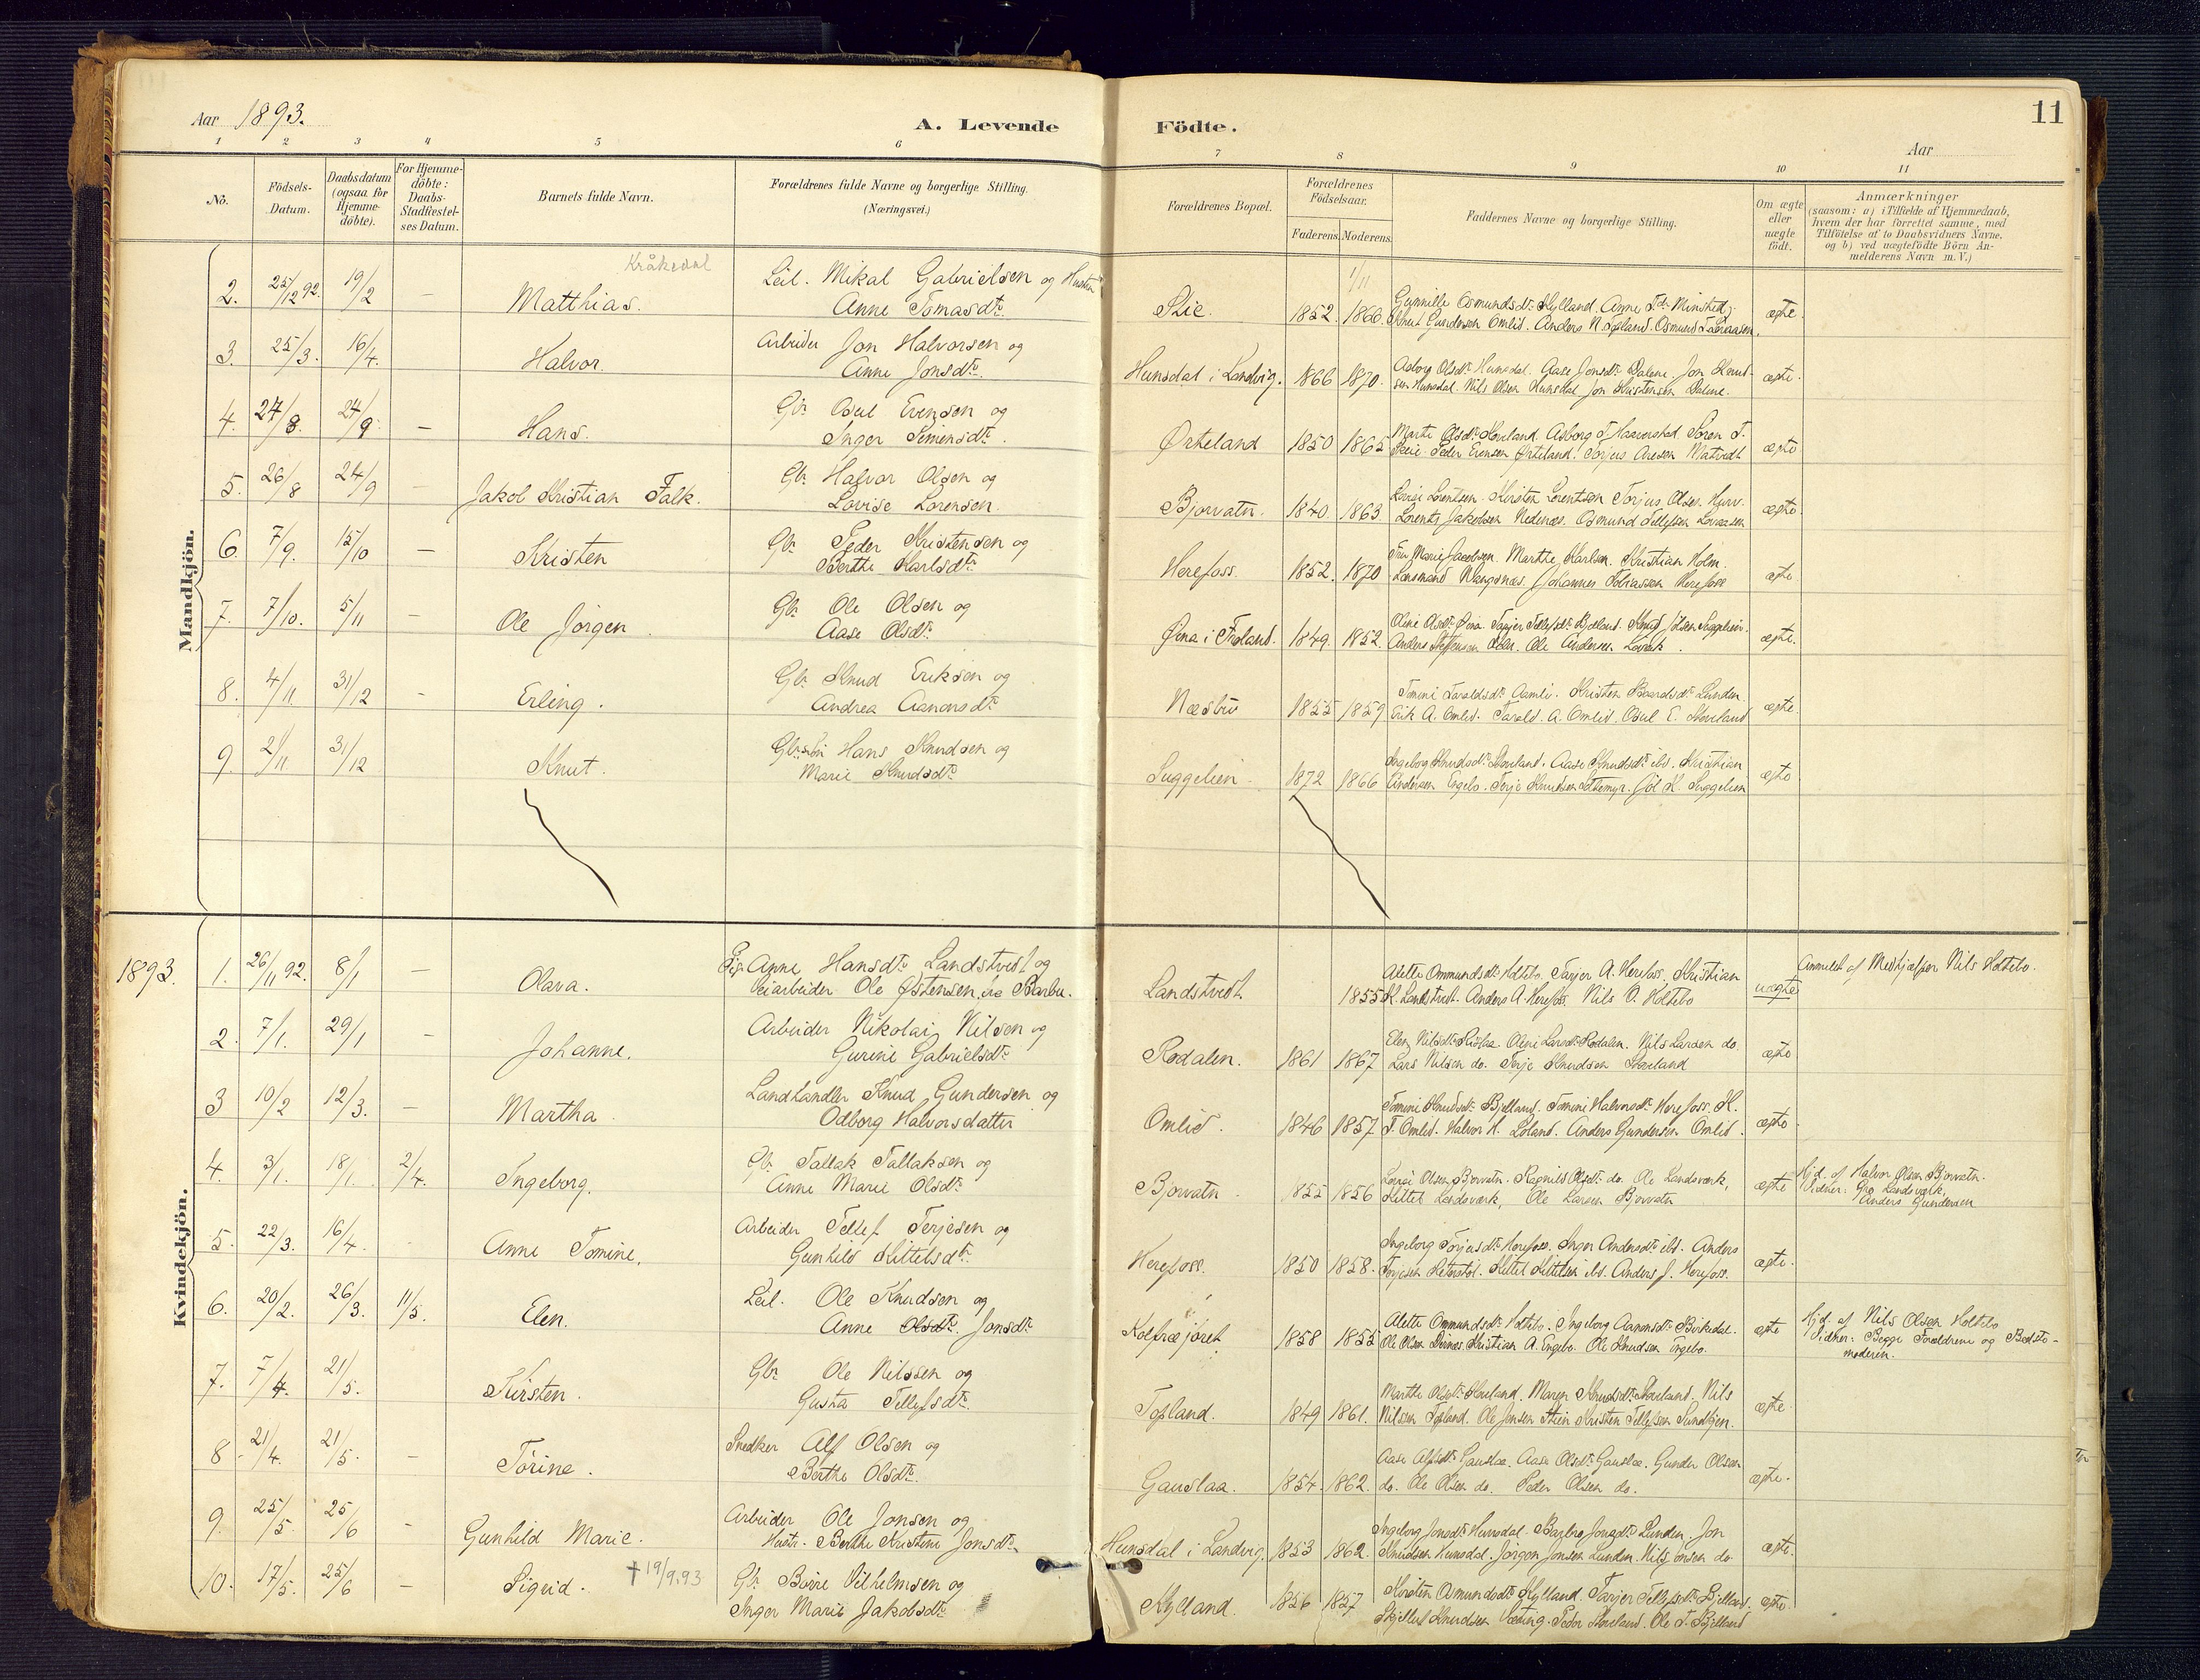 11
Aar 1893.
A. Levende Födte.
Aar
1 2 3 4 5 6 7 8 9 10 11
No.
Födsels-Datum.
Daabsdatum (ogsaa for Hjemme-döbte).
For Hjemme-döbte: Daabs-Stadfæstel-ses Datum.
Barnets fulde Navn.
Forældrenes fulde Navne og borgerlige Stilling.
(Næringsvei.)
Forældrenes Bopæl.
Forældrenes Födselsaar.
Faderens. Moderens.
Faddernes Navne og borgerlige Stilling.
Om ægte eller uægte födt.
Anmærkninger
(saasom: a) i Tilfælde af Hjemmedaab,
hvem der har forrettet samme, med
Tilföielse af to Daabsvidners Navne.
og b) ved uægtefödte Börn An-
melderens Navn m. V.)
Mandkjön.
Kråkedal
2. 25/12 92. 19/2 — Matthias. Leil. Mikal Gabrielsen og Hustru
Anne Tomasdtr.
1852. 1866. ægte.
Gunnille Osmundsdtr. Hylland. Anne
Gundersen Omlid. Anders N. Topland. Osmund
3. 25/3. 16/4. Halvor. Arbeider Jon Halvorsen og
Anne Jonsdtr. Hunsdal i Landvig. 1866 1870. ægte.
Asborg Olsdtr. Hunsdal. Aase Jonsdtr. Dalene. Jon Knud-
sen Hunsdal. Nils Olsen Hunsdal Jon Kristensen Dalene.
4. 27/8. 24/9. — Hans. Gbr. Osul Evensen og
Inger Simensdtr. Örteland 1850 1865 ægte
Marte Olsdtr. Hovland. Asborg T. Sören T.
Peder Evensen Örteland. Torjus Aresen
5. 26/8 24/9 — Jakob Kristian Falk. Gbr. Halvor Olsen og
Lovise Lorensen. Bjorvatn. 1840. 1863 ægte
Lovise Lorentsen. Kirsten Lorentsen Torjus Olsen
Lorents Jakobsen Nedenæs. Osmund Tellefsen
6. 7/9. 15/10 — Kristen Gbr. Peder Kristensen og
Berthe Karlsdtr. Herefoss. 1852. 1870 ægte
Fru Marie Jacobsen. Marthe Karlsen. Kristian Holm.
Lensmand Johannes Tobiassen Herefoss
7. 7/10. 5/11 — Ole Jörgen. Gbr. Ole Olsen og
Aase Olsdtr. i Froland. 1849. 1852. ægte.
Anders Ole Andersen
8. 4/11. 31/12 - Erling. Gbr. Knud Eriksen og
Andrea Aanonsdtr. Næsbö 1855 1859 ægte.
Tomine Taraldsdtr. Aamli. Kristen Lunden
Erik A. Omlid. Tarald. A. Omlid. Osul E. Hovland
9. 2/11 31/12 Knut. Hans Knudsen og
Marie Knudsdtr. Suggelien. 1872 1866 ægte
Ingeborg Knudsdtr. Hovland. Aase Knudsdtr. ibd. Kristian
Andersen Engebo. Terje Knudsen K. Suggelien
Kvindekjön.
1893. 1. 26/11 92. 8/1 — Olava. Pig. Anne Hansdtr. Landstvedt og
Veiarbeider Ole Östensen fra Barbu. Landstvedt 1855 uægte
Alette Ommundsdtr. Holtebo. Tarjer A. Herefoss, Kristian
K. Landstvedt. Anders A. Herefoss. Nils O. Holtebo
Anmeldt af Medhjælper Nils Holtebo.
2. 7/1. 29/1 — Johanne. Arbeider Nikolai Nilsen og
Gurine Gabrielsdtr. Rodalen. 1861 1867 ægte
Elen Nilsdtr. Oline Larsdtr. Rodalen. Nils Larsen do.
Lars Nilsen do. Terje Knudsen Hovland
3 10/2 12/3. — Martha. Landhandler Knud Gundersen og
Odborg Halvorsdatter Omlid. 1846 1857 ægte
Tomine Knudsdtr. Bjelland. Tomine Halvorsdtr. Herefoss. K.
T. Omlid. Halvor H. Loland. Anders Gundersen Omlid.
4. 3/1. 18/1. 2/4. Ingeborg. Gbr. Tallak Tallaksen og
Anne Marie Olsdtr. Bjorvatn. 1855 1856 ægte
Lovise Olsen Bjorvatn. Ragnild Olsdtr. do. Ole Landsværk,
Kittel Landsværk, Ole Larsen Bjorvatn
Hjd. af Halvor Olsen Bjorvatn.
Vidner: Gro Landsværk,
Anders Gundersen
5. 22/3. 16/4. Anne Tomine. Arbeider Tellef Terjesen og
Gunhild Kittelsdtr. Herefoss. 1850 1858. ægte.
Ingeborg Torjusdtr. Herefoss. Inger Andersdtr. ibd. Anders
Kittel Kittelsen ibd. Anders J. Herefoss.
6. 20/2. 26/3. 11/5. Elen. Leil. Ole Knudsen og
Anne Olsdtr. Jonsdtr. 1858 1855 ægte
Alette Ommundsdtr. Holtebo. Ingeborg Aanonsdtr. Birkedal.
Ole Olsen Kristian A. Engebo. Ole Knudsen Engebo.
Hjd. af Nils Olsen Holtebo
Vidner: Begge Forældrene og Bedste-
moderen.
7. 7/4. 21/5. Kirsten. Gbr. Ole Nilssen og
Gusta Tellefsdtr. Topland. 1849 1861. ægte.
Marthe Olsdtr. Hovland. Maren Knudsdtr. Hovland. Nils
Nilssen Topland. Ole Jensen Kristen Tellefsen
8 21/4. 21/5. — Törine. Snedker Alf Olsen og
Berthe Olsdtr. Gauslaa. 1854. 1862. ægte.
Aase Alfsdtr. Gauslaa. Aase Olsdtr. Gauslaa. Gunder Olsen
do. Ole Olsen do. Peder Olsen do.
9. 25/5. 25/6 — Gunhild Marie. Arbeider Ole Jonsen og
Hustr. Berthe Kristine Jonsdtr. Hunsdal i Landvig. 1853 1862. ægte.
Ingeborg Jonsdtr. Hunsdal. Barbro Jonsdtr. Lunden. Jon
Knudsen Hunsdal. Jörgen Jensen Lunden. Nils Jensen do
10. 17/5. 25/6 — Sigrid. † 19/9.93 Gbr. Börre Vilhelmsen og
Inger Marie Jakobsdtr. Kylland. 1856 1857 ægte
Kirsten Osmundsdtr. Kylland. Tarjer Tellefsdtr. Bjelland.
Knudsen Peder Hovland. Ole T. Bjelland